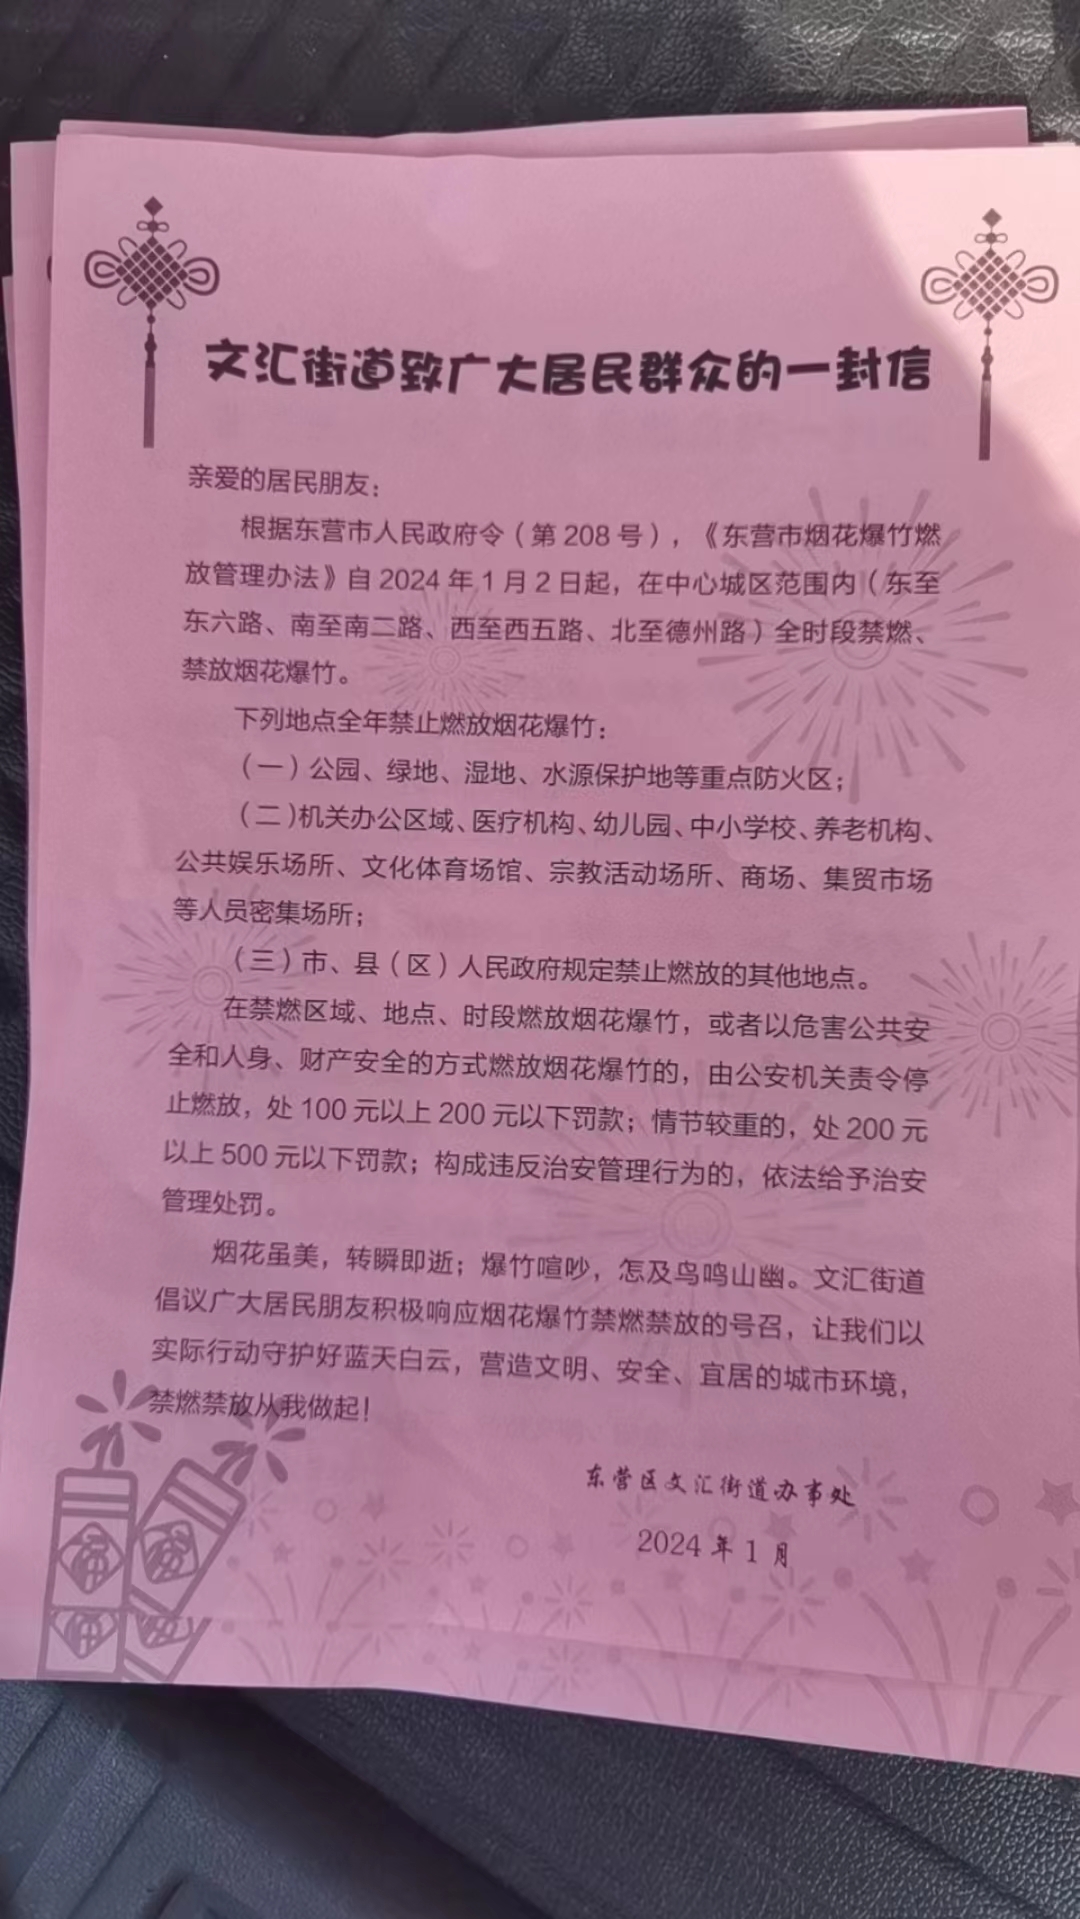 文汇街道致广大居民群众的一封信
亲爱的居民朋友：
根据东营市人民政府令（第208号），《东营市烟花爆竹燃
放管理办法》自2024年1月2日起，在中心城区范围内（东至
东六路、南至南二路、西至西五路、北至德州路）全时段禁燃、
禁放烟花爆竹。
下列地点全年禁止燃放烟花爆竹：
（一）公园、绿地、湿地、水源保护地等重点防火区；
（二）机关办公区域、医疗机构、幼儿园、中小学校、养老机构、
公共娱乐场所、文化体育场馆、宗教活动场所、商场、集贸市场
等人员密集场所；
（三）市、县（区）人民政府规定禁止燃放的其他地点。
在禁燃区域、地点、时段燃放烟花爆竹，或者以危害公共安
全和人身、财产安全的方式燃放烟花爆竹的，由公安机关责令停
止燃放，处100元以上200元以下罚款；情节较重的，处200元
以上500元以下罚款；构成违反治安管理行为的，依法给予治安
管理处罚。
烟花虽美，转瞬即逝；爆竹喧吵，怎及鸟鸣山幽。文汇街道
倡议广大居民朋友积极响应烟花爆竹禁燃禁放的号召，让我们以
实际行动守护好蓝天白云，营造文明、安全、宜居的城市环境，
禁燃禁放从我做起！
东营区文汇街道办事处
2024年1月